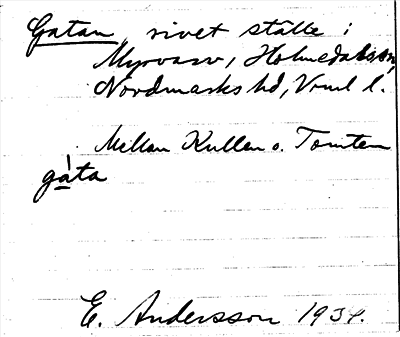 Gatan, rivet ställe i
Myrvarv, Holmedals sn,
Nordmarks hd, Vrml l.
Mellan Kullen o. Tomten
gàta
E. Andersson 1934.